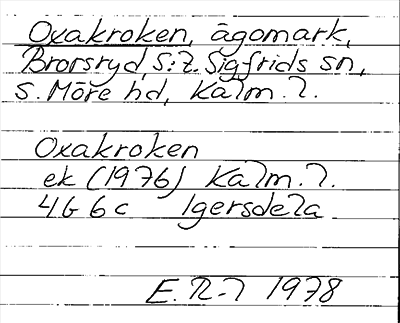 Oxakroken, ägomark,
Brorsryd, S:t Sigfrids sn,
S. Möre hd, Kalm. l.
Oxakroken
ek (1976) Kalm. l.
4G 6c Igersdela
E. R-l 1978